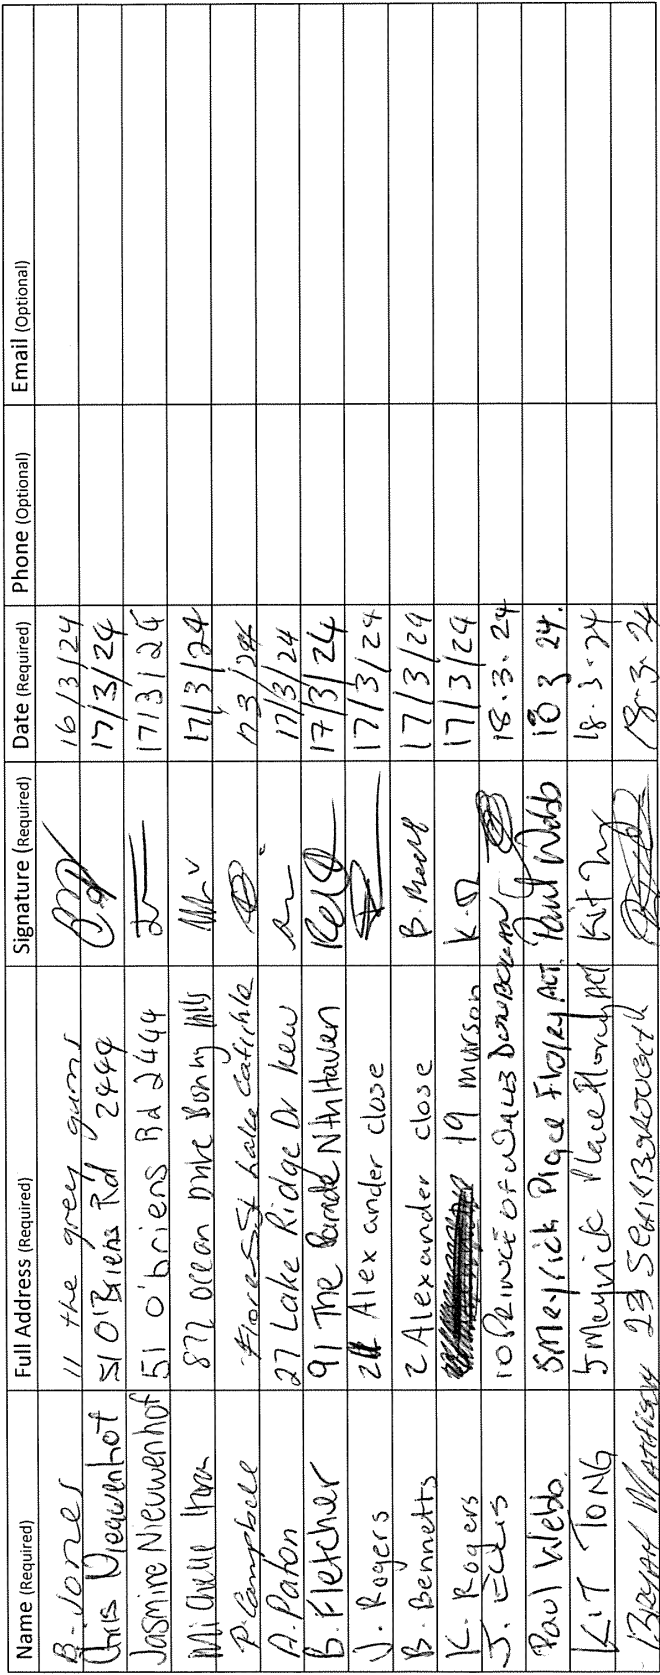 Name (Required) Full Address (Required) Signature (Required) Date (Required) Phone (Optional) Email (Optional)
B. Jones 11 the grey gums 16/3/24
Chris Nieuwenhof 51 O'Briens Rd 2444 17/3/24
Jasmine Nieuwenhof 51 O'briens Rd 2444 17/3/24
Michelle 872 Ocean Drive Bonny Hills 17/3/24
P. Campbell St Lake Cathie 17 3/24
A. Paton 27 Lake Ridge Dr Kew 17/3/24
B. Fletcher 91 The Parade Nth Haven 17/3/24
J. Rogers 2 Alexander close 17/3/24
B. Bennetts 2 Alexander close 17/3/24
K. Rogers 19 K.R 17/3/24
J. Ellis 10 PRINCE OF WALES 18.3.24
Paul Webb 5 Meyrick Place Florey ACT. Paul Webb 18 3 24.
KIT TONG 5 Meyrick Place Florey ACT Kit 18.3.24
BRYAN 23 18.3.24